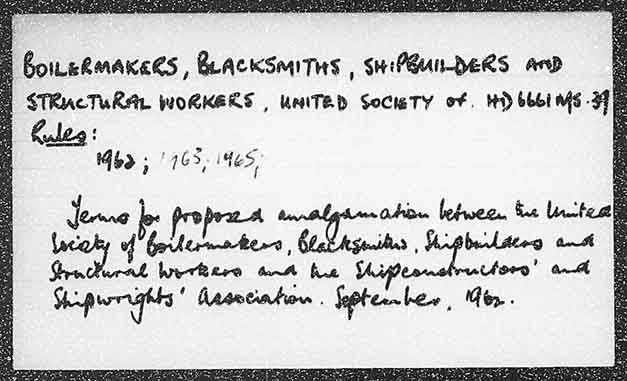 BOILERMAKERS, BLACKSMITHS, SHIPBUILDERS AND
STRUCTURAL WORKERS, UNITED SOCIETY OF. HD6661 N95.39
Rules:
1962; 1963; 1965;
Terms for proposed amalgamation between the United
Society of Boilermakers, Blacksmiths, Shipbuilders and
Structural Workers and the Shipconstructors' and
Shipwrights' Association. September, 1962.